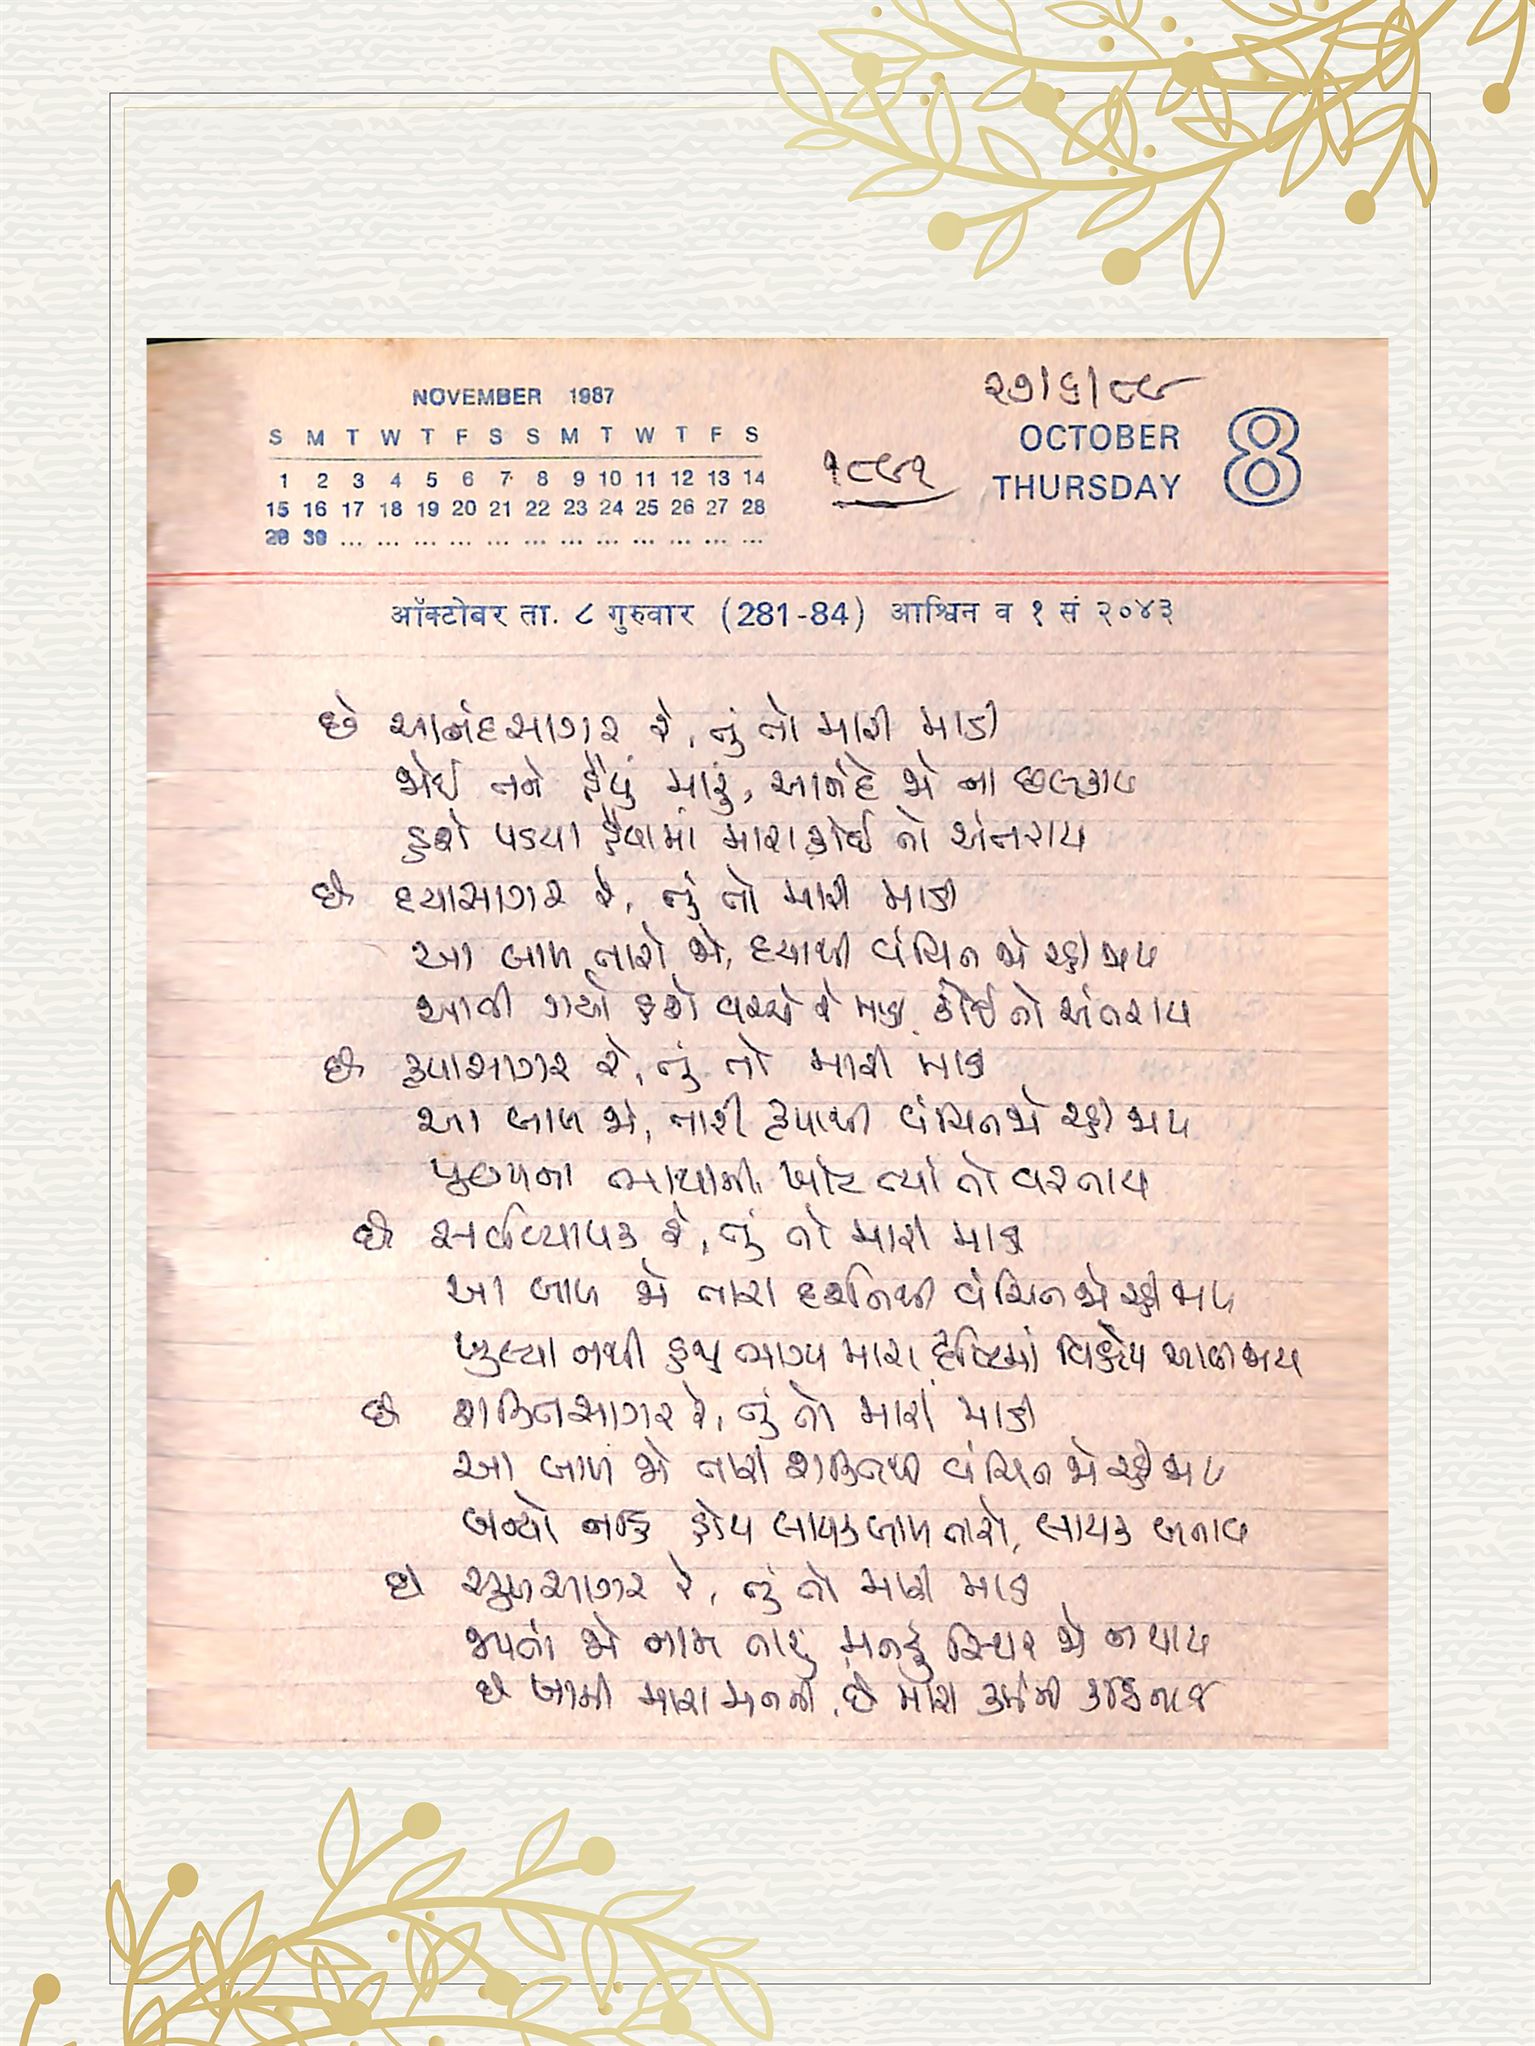 NOVEMBER 1987
S M T W T F S S M T W T F S
1 2 3 4 5 6 7 8 9 10 11 12 13 14
15 16 17 18 19 20 21 22 23 24 25 26 27 28
29 30 ... ... ... ... ... ... ... ... ... ... ... ...
૨૭/૬/૮૯
૧૮૯૧
OCTOBER
THURSDAY
8
ऑक्टोबर ता. ८ गुरुवार (281-84) आश्विन व १ सं २०४३
છે આનંદસાગર રે, તું તો મારી માડી
જોઈ તને હૈયું મારું, આનંદે જો ના છલકાય
હશે પડયા હૈયામાં મારા કોઈ તો અંતરાય
છે દયાસાગર રે, તું તો મારી માડી
આ બાળ તારો જો, દયાથી વંચિત જો રહી જાય
આવી ગયો હશે વચ્ચે રે માડી કોઈ તો અંતરાય
છે કૃપાસાગર રે, તું તો મારી માડી
આ બાળ જો, તારી કૃપાથી વંચિત જો રહી જાય
પુણ્યના ભાથાની ખોટ ત્યાં તો વરતાય
છે સર્વવ્યાપક રે, તું તો મારી માડી
આ બાળ જો તારા દર્શનથી વંચિત જો રહી જાય
ખુલ્યા નથી હજુ ભાગ્ય મારા, દૃષ્ટિમાં વિક્ષેપ આવી જાય
છે શક્તિસાગર રે, તું તો મારી માડી
આ બાળ જો તારી શક્તિથી વંચિત જો રહી જાય
બન્યો નહિ હોય લાયક બાળ તારો, લાયક બનાવ
છે સુખસાગર રે, તું તો મારી માડી
જપતાં જો નામ તારું મનડું સ્થિર જો ન થાય
છે ખામી મારા મનની, છે મારા કર્મની કઠિનાઈ